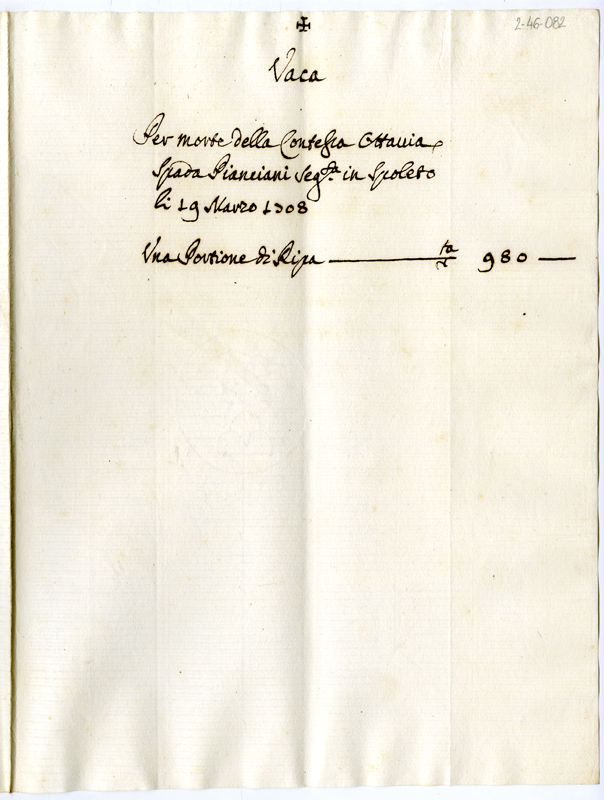 2-46-082
✠
Vaca
Per morte della Contessa Ottavia
Spada Pianciani seg.ta in Spoleto
li 19 Marzo 1708
Una Portione di Ripa — 980 —